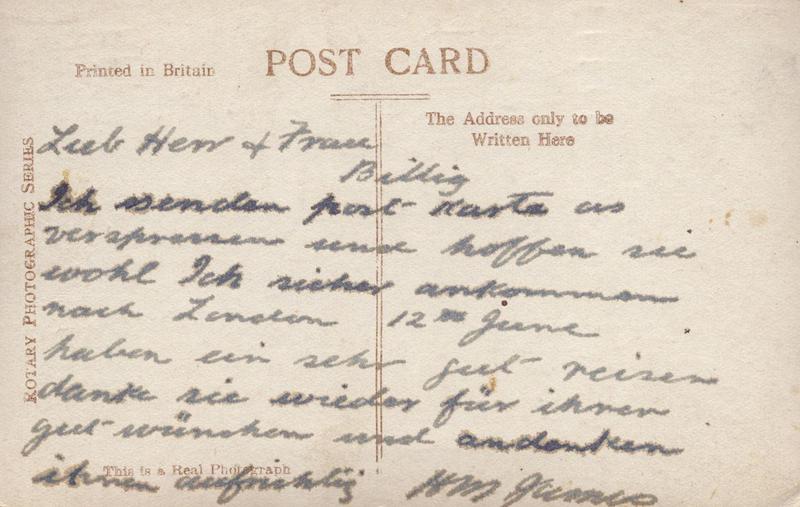 Printed in Britain
POST CARD
The Address only to be
Written Here
ROTARY PHOTOGRAPHIC SERIES
Lieb Herr & Frau
Billig
Ich senden post karta as
verspressen und hoffen sie
wohl Ich sicher ankommen
nach London 12th June
haben ein sehr gut reisen
danke sie wieder für ihrer
gut wünchen und andenken
ihren aufrichtig HM James
This is a Real Photograph